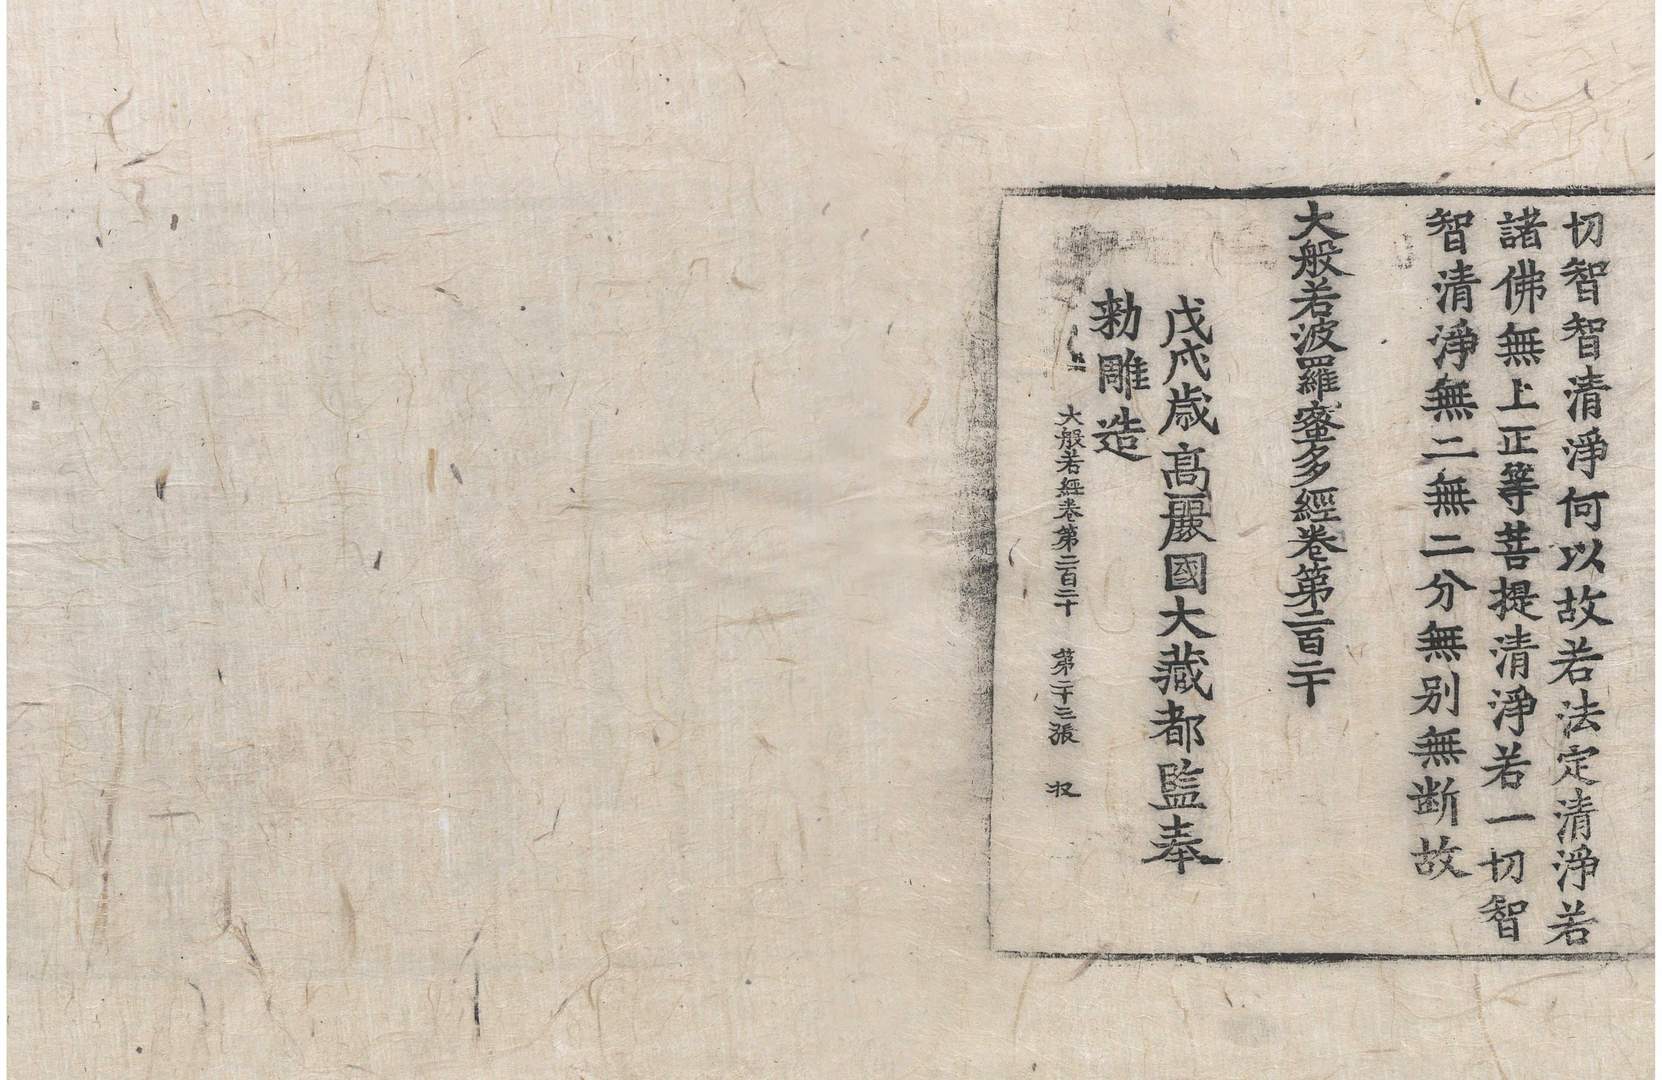 切智智清淨何以故若法定清淨若
諸佛無上正等菩提清淨若一切智
智清淨無二無二分無别無断故
大般若波羅蜜多經卷第二百二十
戊戌歳髙麗國大藏都監奉
勑雕造
大般若經卷第二百二十 第二十二張